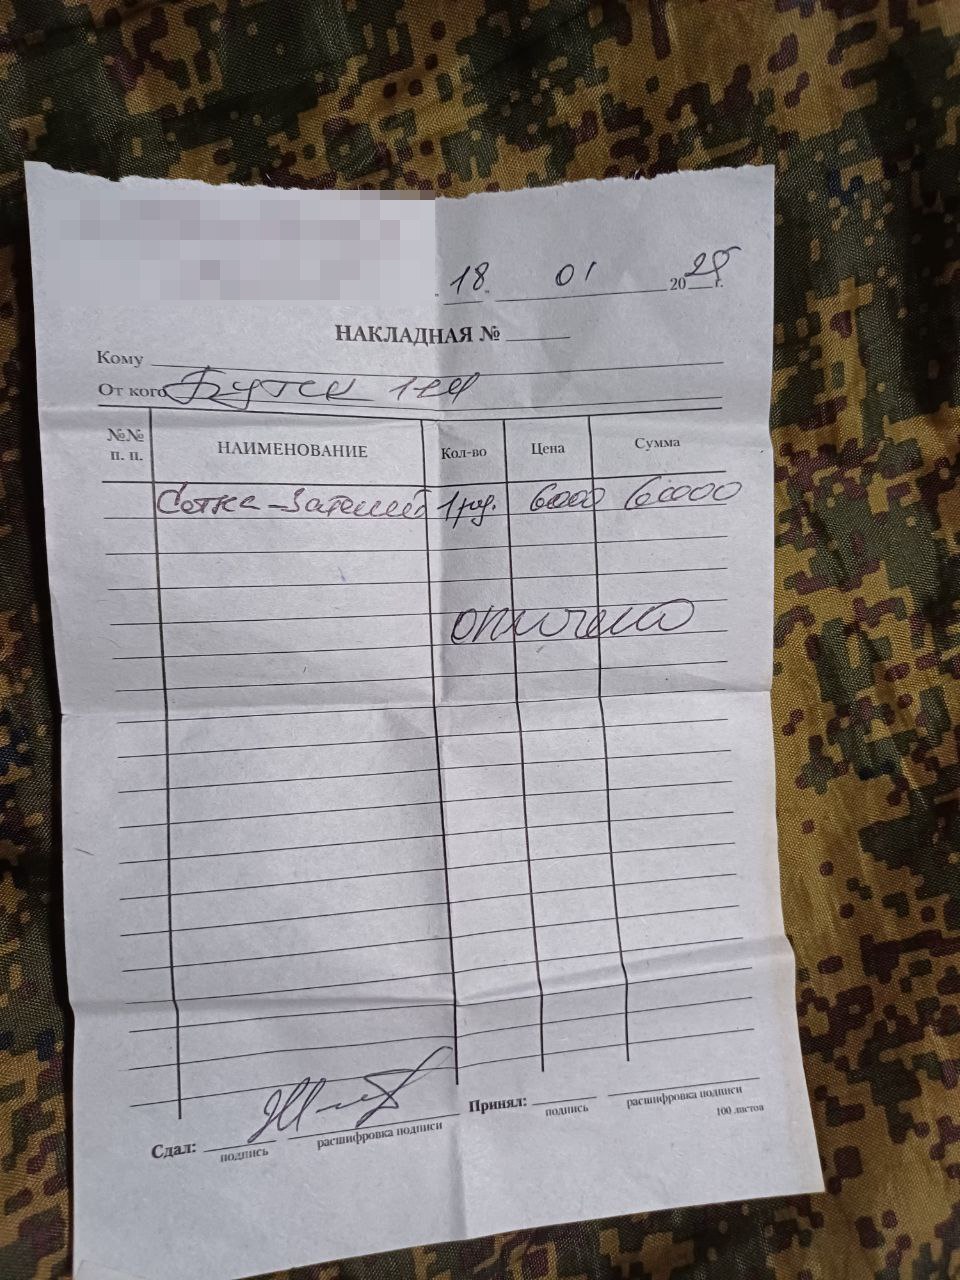 " 18 " 01 2025 г.
НАКЛАДНАЯ №
Кому
От кого Бутик 144
№№ п. п. НАИМЕНОВАНИЕ Кол-во Цена Сумма
Сетка 1 рул. 6000 6000
оплачено
Сдал: Принял:
подпись расшифровка подписи подпись расшифровка подписи
100 листов